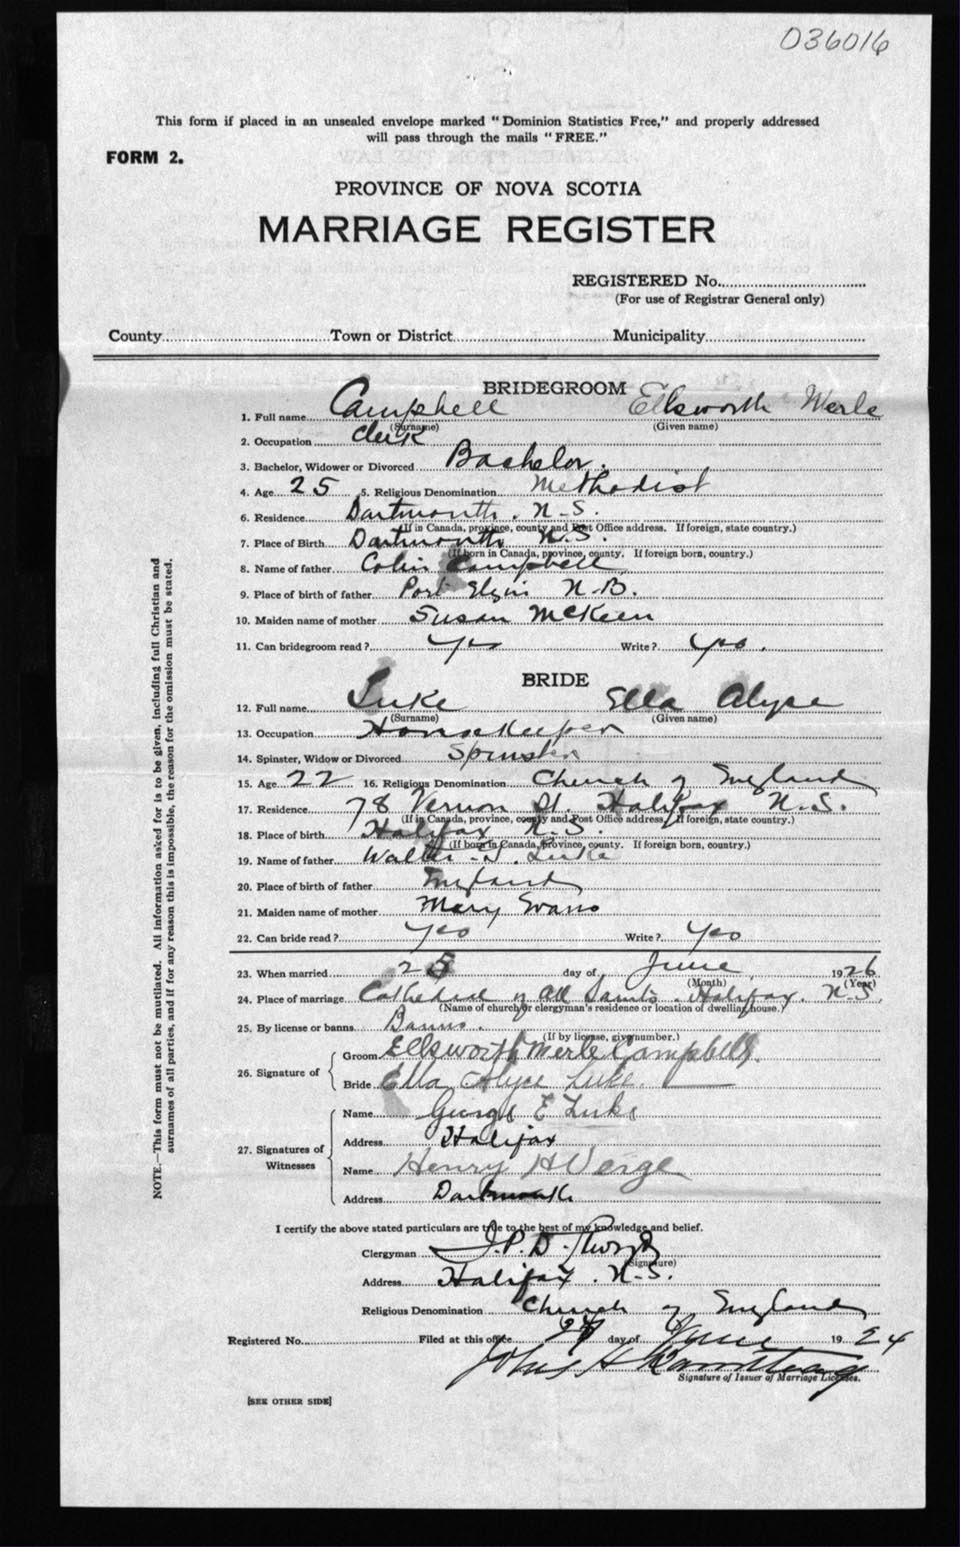 036016
This form if placed in an unsealed envelope marked "Dominion Statistics Free," and properly addressed
will pass through the mails "FREE."
FORM 2.
PROVINCE OF NOVA SCOTIA
MARRIAGE REGISTER
REGISTERED No.
(For use of Registrar General only)
County Town or District Municipality
BRIDEGROOM
1. Full name Campbell Ellsworth Merle
(Surname) (Given name)
2. Occupation Clerk
3. Bachelor, Widower or Divorced Bachelor.
4. Age 25 5. Religious Denomination Methodist
6. Residence Dartmouth. N.S.
(If in Canada, province, county and Post Office address. If foreign, state country.)
7. Place of Birth Dartmouth N.S.
(If born in Canada, province, county. If foreign born, country.)
8. Name of father Colin Campbell
9. Place of birth of father Port Elgin N.B.
10. Maiden name of mother Susan McKeen
11. Can bridegroom read? Yes Write? Yes.
BRIDE
12. Full name Luke Ella Alyce
(Surname) (Given name)
13. Occupation Housekeeper
14. Spinster, Widow or Divorced Spinster
15. Age 22 16. Religious Denomination Church of England
17. Residence 78 Vernon St. Halifax N.S.
(If in Canada, province, county and Post Office address. If foreign, state country.)
18. Place of birth Halifax N.S.
(If born in Canada, province, county. If foreign born, country.)
19. Name of father Walter Luke
20. Place of birth of father England
21. Maiden name of mother Mary Evans
22. Can bride read? Yes Write? Yes
23. When married 25 day of June 1926
(Month) (Year)
24. Place of marriage Cathedral of All Saints. Halifax. N.S.
(Name of church or clergyman's residence or location of dwelling house.)
25. By license or banns Banns.
(If by license, give number.)
26. Signature of Groom Ellsworth Merle Campbell.
Bride Ella Alyce Luke.
27. Signatures of Witnesses Name George E Luke
Address Halifax
Name Henry H Verge
Address Dartmouth
I certify the above stated particulars are true to the best of my knowledge and belief.
Clergyman J.P.D.
(Signature)
Address Halifax. N.S.
Religious Denomination Church of England
Registered No. Filed at this office day of June 1924
John H
Signature of Issuer of Marriage Licenses.
[SEE OTHER SIDE]
NOTE.—This form must not be mutilated. All information asked for is to be given, including full Christian and
surnames of all parties, and if for any reason this is impossible, the reason for the omission must be stated.